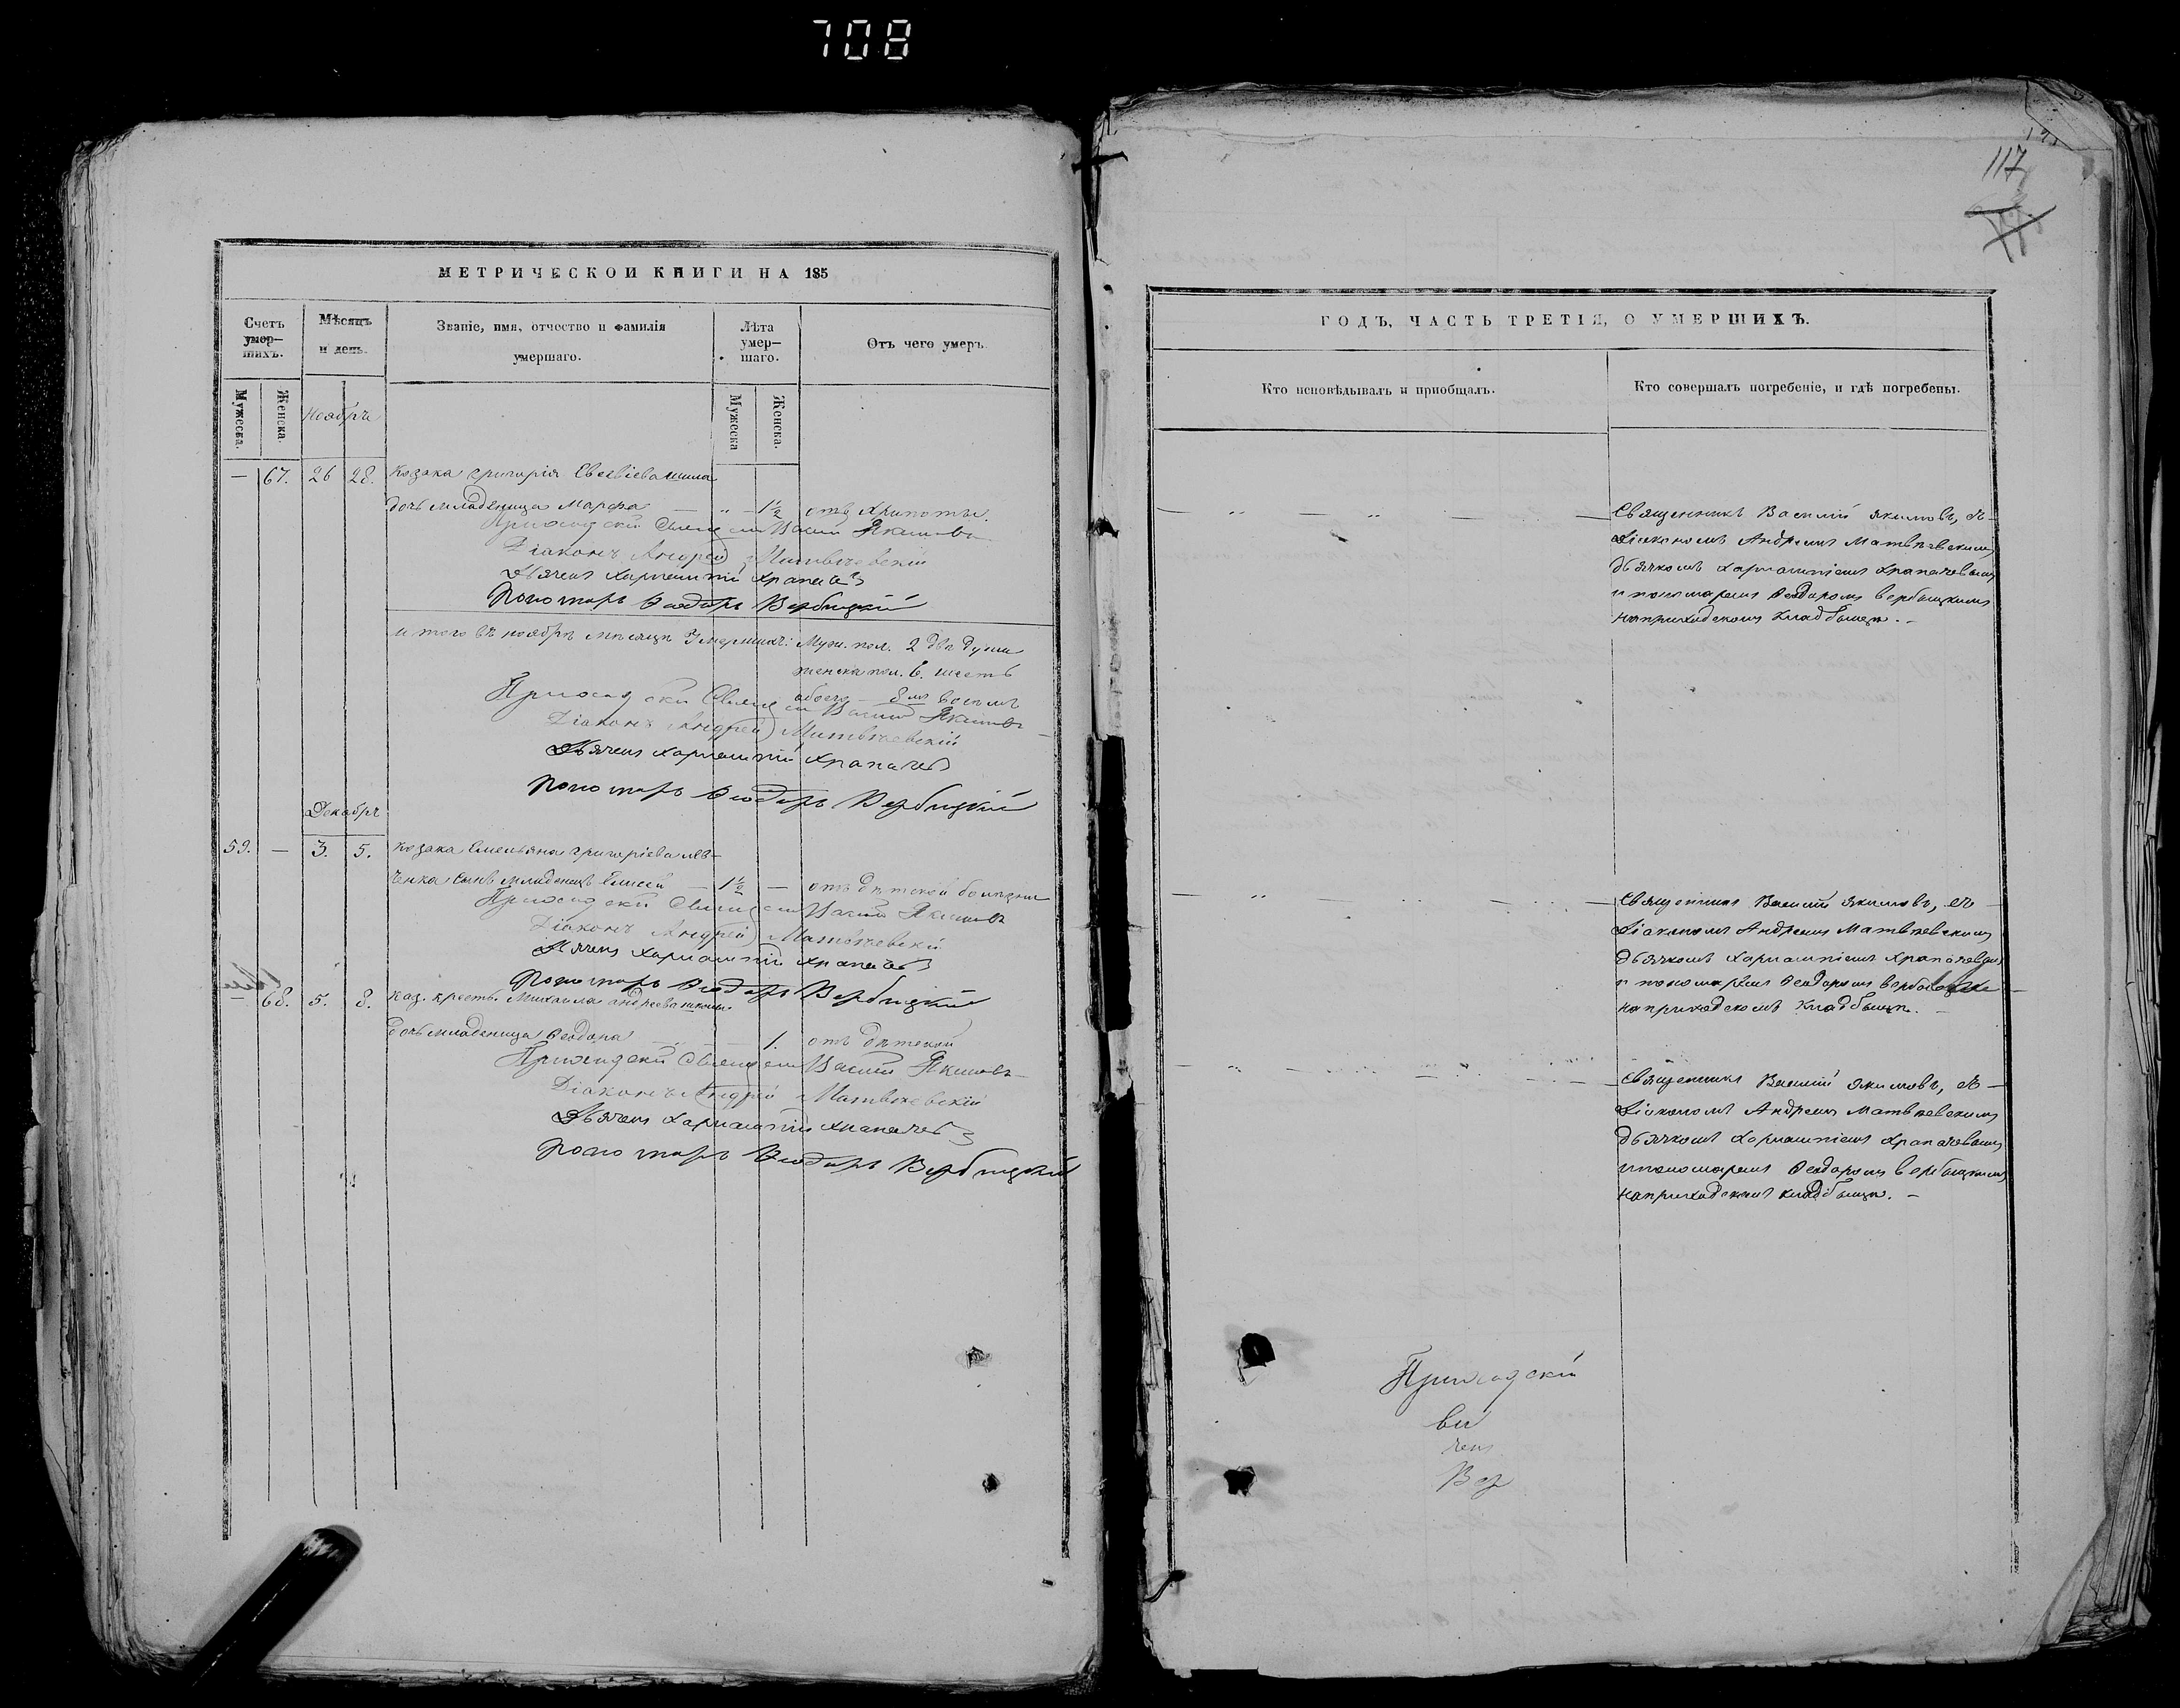 708
МЕТРИЧЕСКОЙ КНИГИ НА 185
Счетъ умер-шихъ.
Мѣсяцъ и день.
Званіе, имя, отчество и фамилія умершаго.
Лѣта умер-шаго.
Отъ чего умеръ.
Мужеска.
Женска.
Ноябрь
Мужеска
Женска.
— 67. 26 28. Козака Григорія
дочь младеница Марѳа — „ 1½ отъ хрипоты.
Приходскій Священникъ Василій Якимовъ
Діаконъ Андрей Матвѣевскій
Дьячекъ Харлампій Храпачевъ
Пономарь Ѳеодоръ Вербицкій
Итого въ ноябрѣ мѣсяцѣ умершихъ: Муж. пол. 2 двѣ души
женска пол. 6. шесть
обоего — 8мь восемь
Приходскій Священникъ Василій Якимовъ
Діаконъ Андрей Матвѣевскій
Дьячекъ Харлампій Храпачевъ
Пономарь Ѳеодоръ Вербицкій
Декабрь
59. — 3. 5. Козака Емельяна Григоріева Лев-
ченка сынъ младенецъ Елисей — 1½ — отъ дѣтской болѣзни
Приходскій Священникъ Василій Якимовъ
Діаконъ Андрей Матвѣевскій
Дьячекъ Харлампій Храпачевъ
Пономарь Ѳеодоръ Вербицкій
— 68. 5. 8. Каз. крест. Михаила Андреева
дочь младеница Ѳеодора 1. отъ дѣтской
Приходскій Священникъ Василій Якимовъ
Діаконъ Андрей Матвѣевскій
Дьячекъ Харлампій Храпачевъ
Пономарь Ѳеодоръ Вербицкій
117
ГОДЪ, ЧАСТЬ ТРЕТІЯ, О УМЕРШИХЪ.
Кто исповѣдывалъ и пріобщалъ.
Кто совершалъ погребеніе, и гдѣ погребены.
Священникъ Василій Якимовъ, съ
Діакономъ Андреемъ Матвѣевскимъ
дьячкомъ Харлампіемъ Храпачевымъ
и пономаремъ Ѳеодоромъ Вербицкимъ
на приходскомъ кладбищѣ. —
Священникъ Василій Якимовъ, съ
Діакономъ Андреемъ Матвѣевскимъ
дьячкомъ Харлампіемъ Храпачевымъ
и пономаремъ Ѳеодоромъ Вербицкимъ
на приходскомъ кладбищѣ. —
Священникъ Василій Якимовъ, съ
Діакономъ Андреемъ Матвѣевскимъ
дьячкомъ Харлампіемъ Храпачевымъ
и пономаремъ Ѳеодоромъ Вербицкимъ
на приходскомъ кладбищѣ. —
Приходскій
вѣ
чекъ
Вер